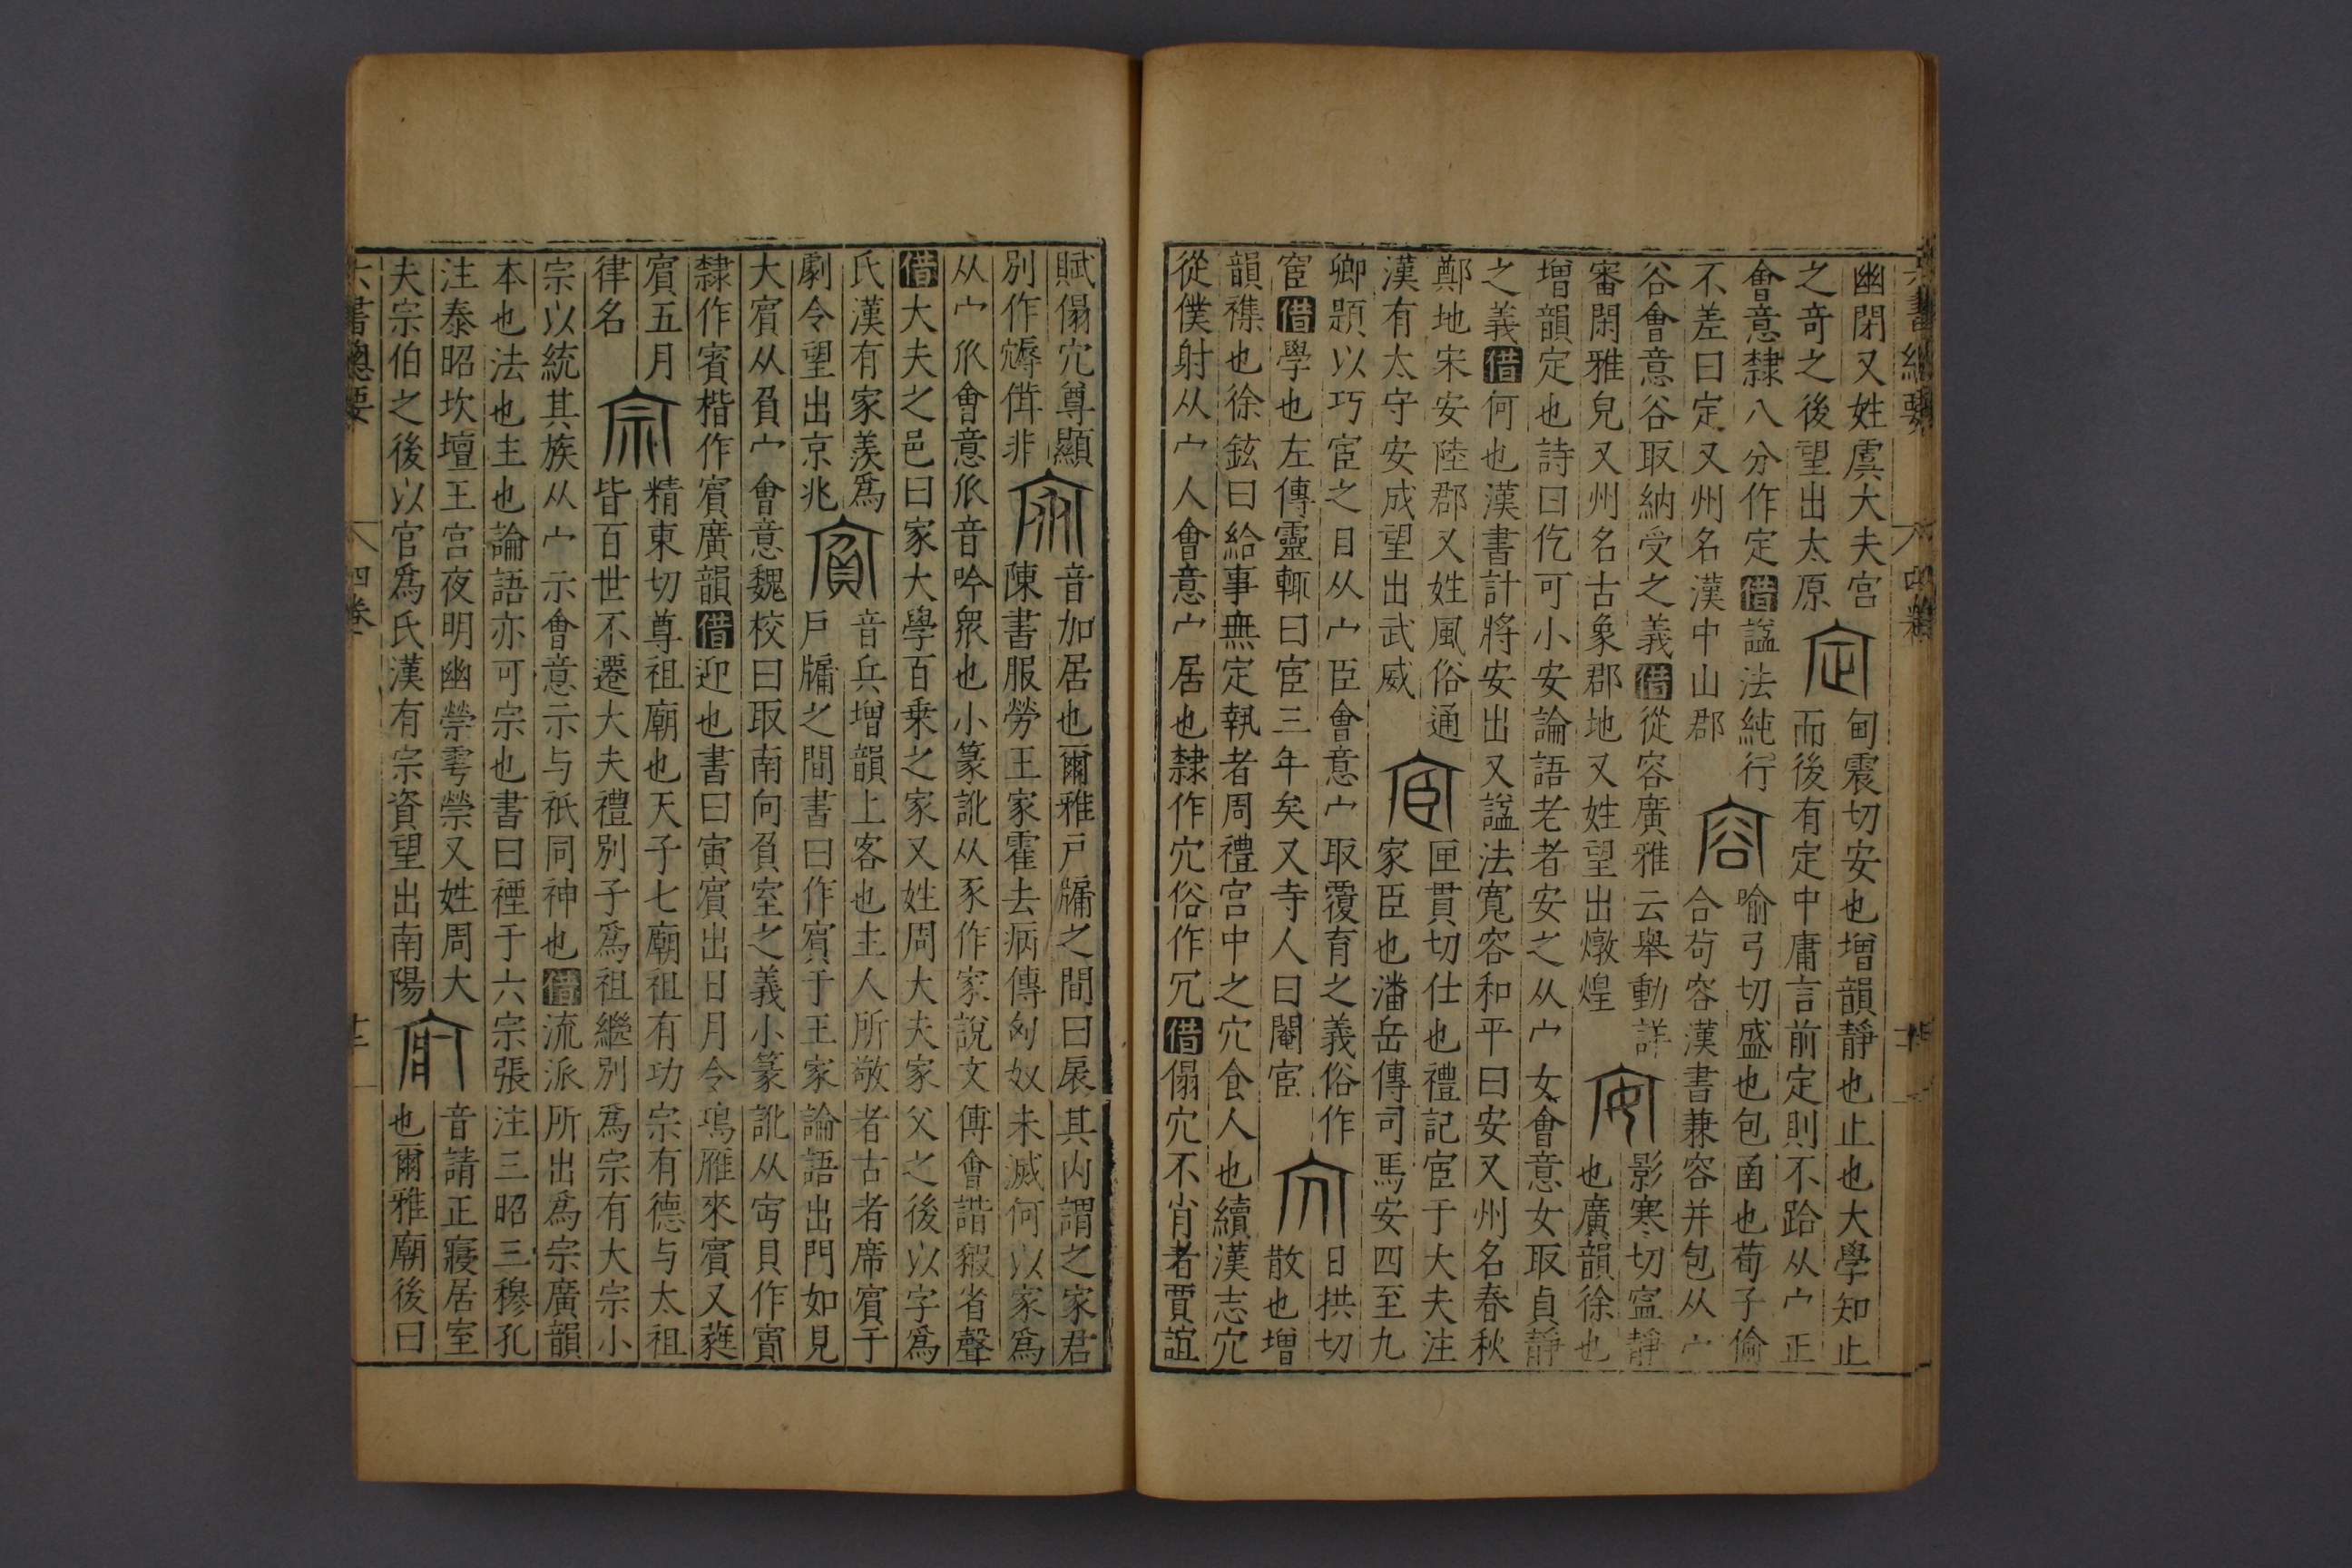 六書總要 四卷
幽閉又姓虞大夫宮
之奇之後望出太原 定 甸震切安也增韻靜也止也大學知止
而後有定中庸言前定則不跲从宀正
會意隸八分作定借諡法純行
不差曰定又州名漢中山郡 容 喻弓切盛也包函也荀子偷
合苟容漢書兼容并包从宀
谷會意谷取納受之義借從容廣雅云舉動詳
審閑雅皃又州名古象郡地又姓望出燉煌 安 影寒切寍靜
也廣韻徐也
增韻定也詩曰仡可小安論語老者安之从宀女會意女取貞靜
之義借何也漢書計將安出又諡法寬容和平曰安又州名春秋
鄭地宋安陸郡又姓風俗通
漢有太守安成望出武威 宦 匣貫切仕也禮記宦于大夫注
家臣也潘岳傳司馬安四至九
卿題以巧宦之目从宀臣會意宀取覆育之義俗作
宧借學也左傳靈輒曰宦三年矣又寺人曰閹宦 宂 日拱切
散也增
韻襍也徐鉉曰給事無定執者周禮宮中之宂食人也續漢志宂
從僕射从宀人會意宀居也隸作宂俗作冗借傝宂不肖者賈誼
賦傝宂尊顯
別作𡫦傇非 㐺 音加居也爾雅戶牖之間曰扆其內謂之家君
陳書服勞王家霍去病傳匈奴未滅何以家爲
从宀㐺會意㐺音吟衆也小篆訛从豕作家說文傅會諧豭省聲
借大夫之邑曰家大學百乗之家又姓周大夫家父之後以字爲
氏漢有家羨爲
劇令望出京兆 賔 音兵增韻上客也主人所敬者古者席賔于
戶牖之間書曰作賔于王家論語出門如見
大賔从負宀會意魏校曰取南向負室之義小篆訛从宀貝作賓
隸作賓楷作賔廣韻借迎也書曰寅賔出日月令鳿雁來賔又蕤
賔五月
律名 宗 精東切尊祖廟也天子七廟祖有功宗有德与太祖
皆百世不遷大夫禮別子爲祖繼別爲宗有大宗小
宗以統其族从宀示會意示与祇同神也借流派所出爲宗廣韻
本也法也主也論語亦可宗也書曰禋于六宗張注三昭三穆孔
注泰昭坎壇王宮夜明幽禜雩禜又姓周大
夫宗伯之後以官爲氏漢有宗資望出南陽 音請正寢居室
也爾雅廟後曰
六書總要 四卷